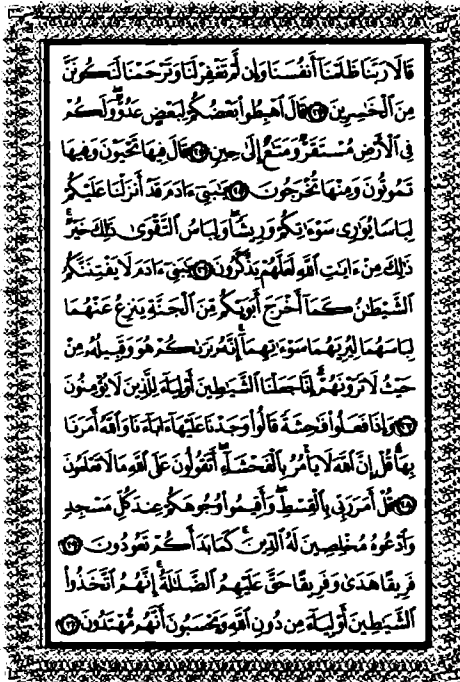 قَالَا رَبَّنَا ظَلَمْنَا أَنفُسَنَا وَإِن لَّمْ تَغْفِرْ لَنَا وَتَرْحَمْنَا لَنَكُونَنَّ
مِنَ ٱلْخَٰسِرِينَ ٢٣ قَالَ ٱهْبِطُوا۟ بَعْضُكُمْ لِبَعْضٍ عَدُوٌّ ۖ وَلَكُمْ
فِى ٱلْأَرْضِ مُسْتَقَرٌّ وَمَتَٰعٌ إِلَىٰ حِينٍ ٢٤ قَالَ فِيهَا تَحْيَوْنَ وَفِيهَا
تَمُوتُونَ وَمِنْهَا تُخْرَجُونَ ٢٥ يَٰبَنِىٓ ءَادَمَ قَدْ أَنزَلْنَا عَلَيْكُمْ
لِبَاسًا يُوَٰرِى سَوْءَٰتِكُمْ وَرِيشًا ۖ وَلِبَاسُ ٱلتَّقْوَىٰ ذَٰلِكَ خَيْرٌ ۚ
ذَٰلِكَ مِنْ ءَايَٰتِ ٱللَّهِ لَعَلَّهُمْ يَذَّكَّرُونَ ٢٦ يَٰبَنِىٓ ءَادَمَ لَا يَفْتِنَنَّكُمُ
ٱلشَّيْطَٰنُ كَمَآ أَخْرَجَ أَبَوَيْكُم مِّنَ ٱلْجَنَّةِ يَنزِعُ عَنْهُمَا
لِبَاسَهُمَا لِيُرِيَهُمَا سَوْءَٰتِهِمَآ ۗ إِنَّهُۥ يَرَىٰكُمْ هُوَ وَقَبِيلُهُۥ مِنْ
حَيْثُ لَا تَرَوْنَهُمْ ۗ إِنَّا جَعَلْنَا ٱلشَّيَٰطِينَ أَوْلِيَآءَ لِلَّذِينَ لَا يُؤْمِنُونَ
٢٧ وَإِذَا فَعَلُوا۟ فَٰحِشَةً قَالُوا۟ وَجَدْنَا عَلَيْهَآ ءَابَآءَنَا وَٱللَّهُ أَمَرَنَا
بِهَا ۗ قُلْ إِنَّ ٱللَّهَ لَا يَأْمُرُ بِٱلْفَحْشَآءِ ۖ أَتَقُولُونَ عَلَى ٱللَّهِ مَا لَا تَعْلَمُونَ
٢٨ قُلْ أَمَرَ رَبِّى بِٱلْقِسْطِ ۖ وَأَقِيمُوا۟ وُجُوهَكُمْ عِندَ كُلِّ مَسْجِدٍ
وَٱدْعُوهُ مُخْلِصِينَ لَهُ ٱلدِّينَ ۚ كَمَا بَدَأَكُمْ تَعُودُونَ ٢٩
فَرِيقًا هَدَىٰ وَفَرِيقًا حَقَّ عَلَيْهِمُ ٱلضَّلَٰلَةُ ۗ إِنَّهُمُ ٱتَّخَذُوا۟
ٱلشَّيَٰطِينَ أَوْلِيَآءَ مِن دُونِ ٱللَّهِ وَيَحْسَبُونَ أَنَّهُم مُّهْتَدُونَ ٣٠